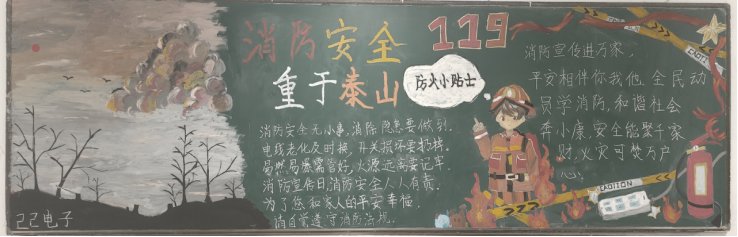 消防安全
重于泰山
119
防火小贴士
消防安全无小事,消除隐患要做到.
电线老化及时换,开关损坏要扔掉.
易燃易爆需管好,火源远离要记牢.
消防宣传日消防安全人人有责.
为了您和家人的平安幸福,
请自觉遵守消防法规.
消防宣传进万家,
平安相伴你我他.全民动
员学消防,和谐社会
奔小康.安全能聚千家
财,火灾可焚万户
心.
CAUTION
己己电子